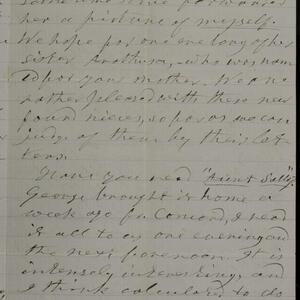 her a picture of myself.
We hope for one ere long of her
sister Arathusa, who was nam
ed for your mother. We are
rather pleased with these new
found nieces, so far as we can
judge of them by their let
ters.
Have you read "Aunt Sally".
George brought it home a
week ago fr. Concord, I read
it all to us one evening and
the next forenoon. It is
intensely interesting, and
I think calculated to do